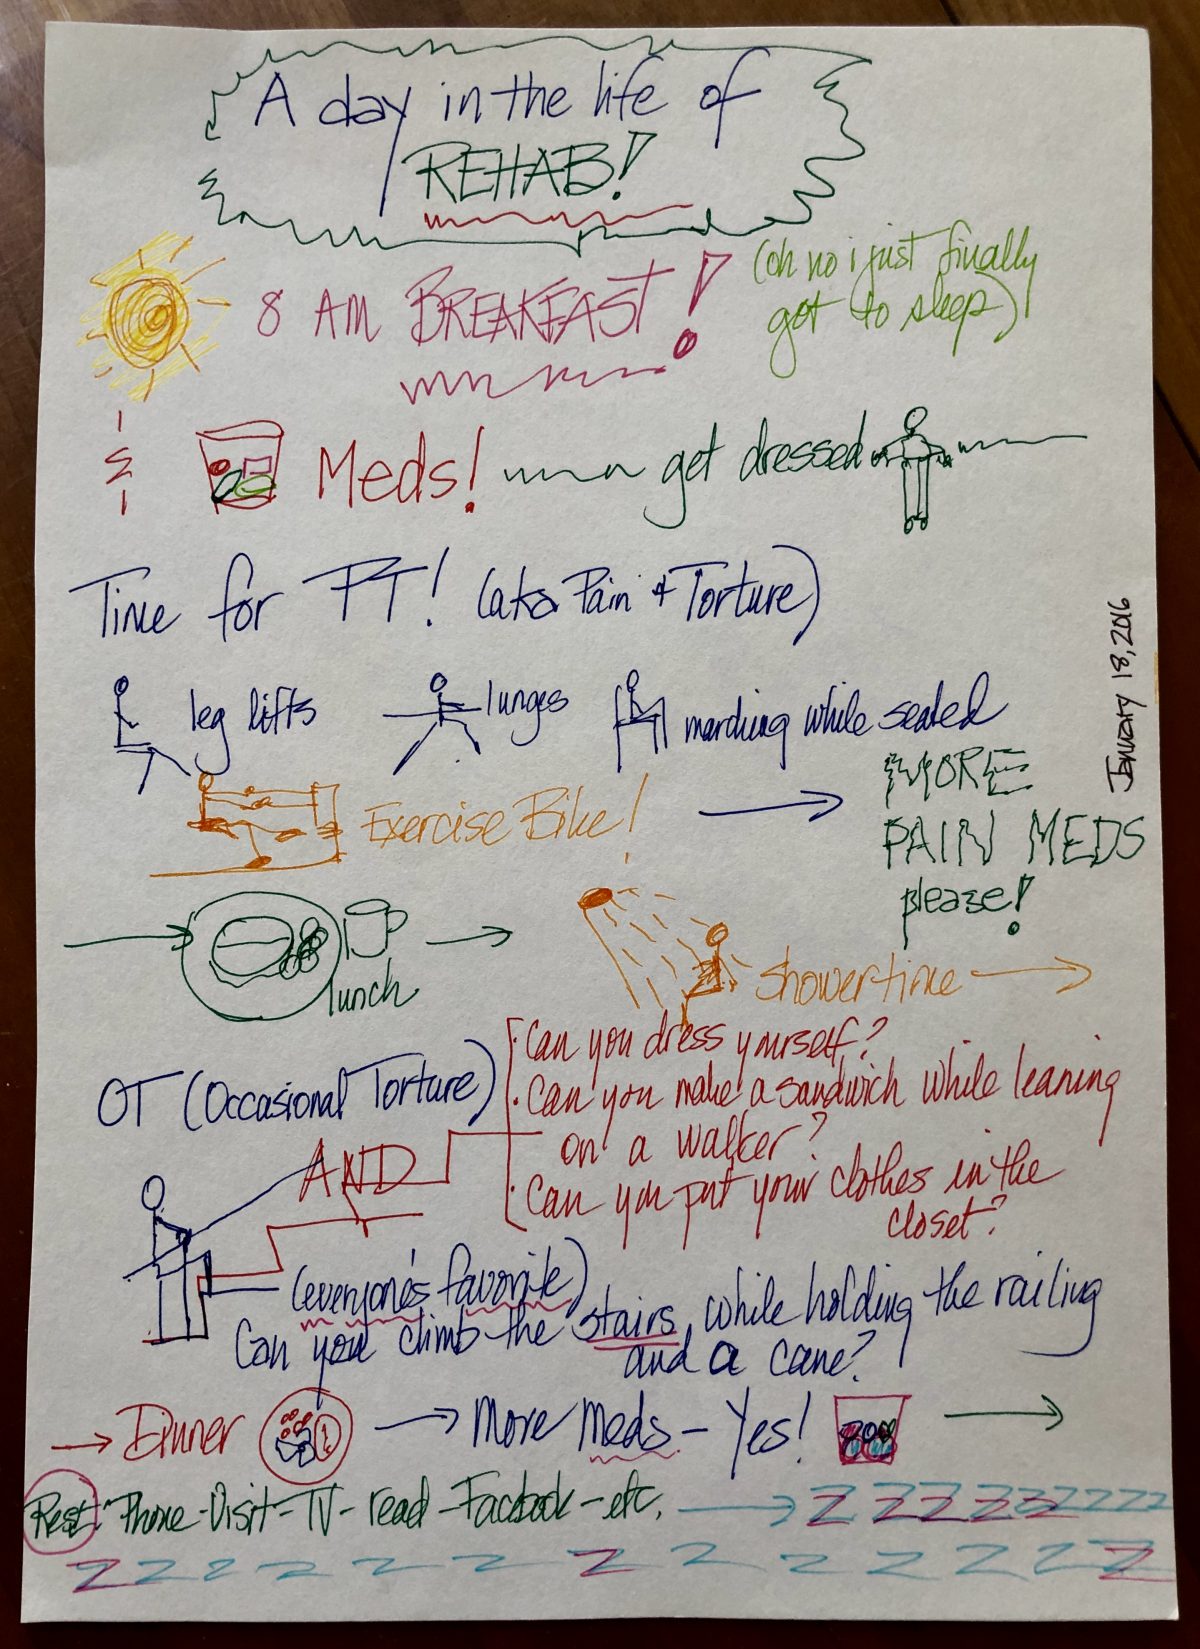 A day in the life of
REHAB!
8 AM BREAKFAST!
(oh no i just finally
got to sleep)
Meds! get dressed
Time for PT! (aka Pain + Torture)
January 18, 2016
leg lifts lunges marching while seated
Exercise Bike!
MORE
PAIN MEDS
please!
lunch
Showertime
OT (Occasional Torture)
· Can you dress yourself?
· Can you make a sandwich while leaning
on a walker?
· Can you put your clothes in the
closet?
AND
(everyone's favorite)
Can you climb the stairs while holding the railing
and a cane?
Dinner More Meds - Yes!
Rest: Phone - Visit - TV - read - Facebook - etc. Z Z Z Z Z Z Z Z Z Z
Z Z Z Z Z Z Z Z Z Z Z Z Z Z